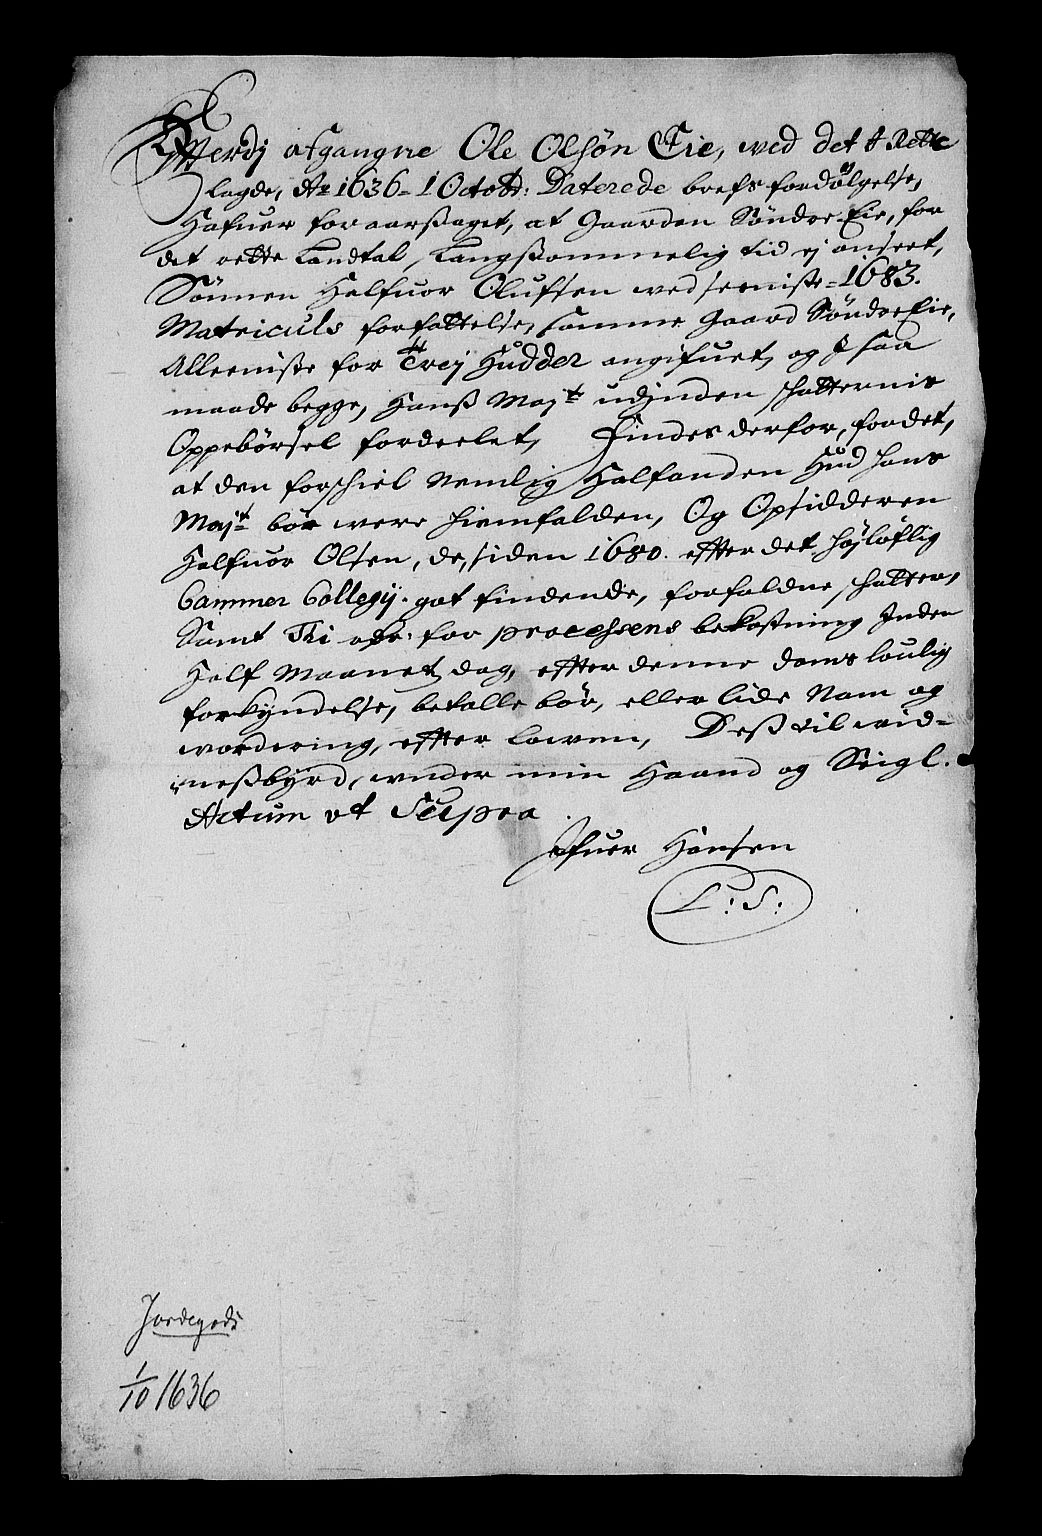 Hwerdj afgangne Ole Olsøn Eie, wed det J Rette
lagde, Ao 1636 = 1 Octobr: Daterede brefs fordølgelse,
Hafuer foraarßaget, at Gaarden Søndre Eie, for
det rette Landtal, langßommelig tid ej anseet,
Sønnen Halfuor Olufsen wed seeniste = 1683.
Matriculs forfattelse, samme gaard Søndre Eie,
Alleeniste for Trej Hudder angifuet, og J saa
maade begge, Hanß Majts udjnden schatternis
Oppebørsel fordeelet, Findes derfor, for det,
at den forschiel Nemlig Halfanden Hud hans
Majts bør were hiemfalden, Og Opsidderen
Halfuor Olsen, de, siden 1680. effter det høiløflig
Cammer Collegij. got findende, forfaldne schatter,
Samt Thi rdr. for processens bekostning Inden
Half Maanet dag, effter denne doms loulig
forkyndelse, betalle bør, eller lide Nam og
wordering, effter lowen, Deß til wid=
neßbyrd, under min Haand og Seigl.
Actum ut Supra
Jfuer Hansen
L: S:
Jordegods
1/10 1636